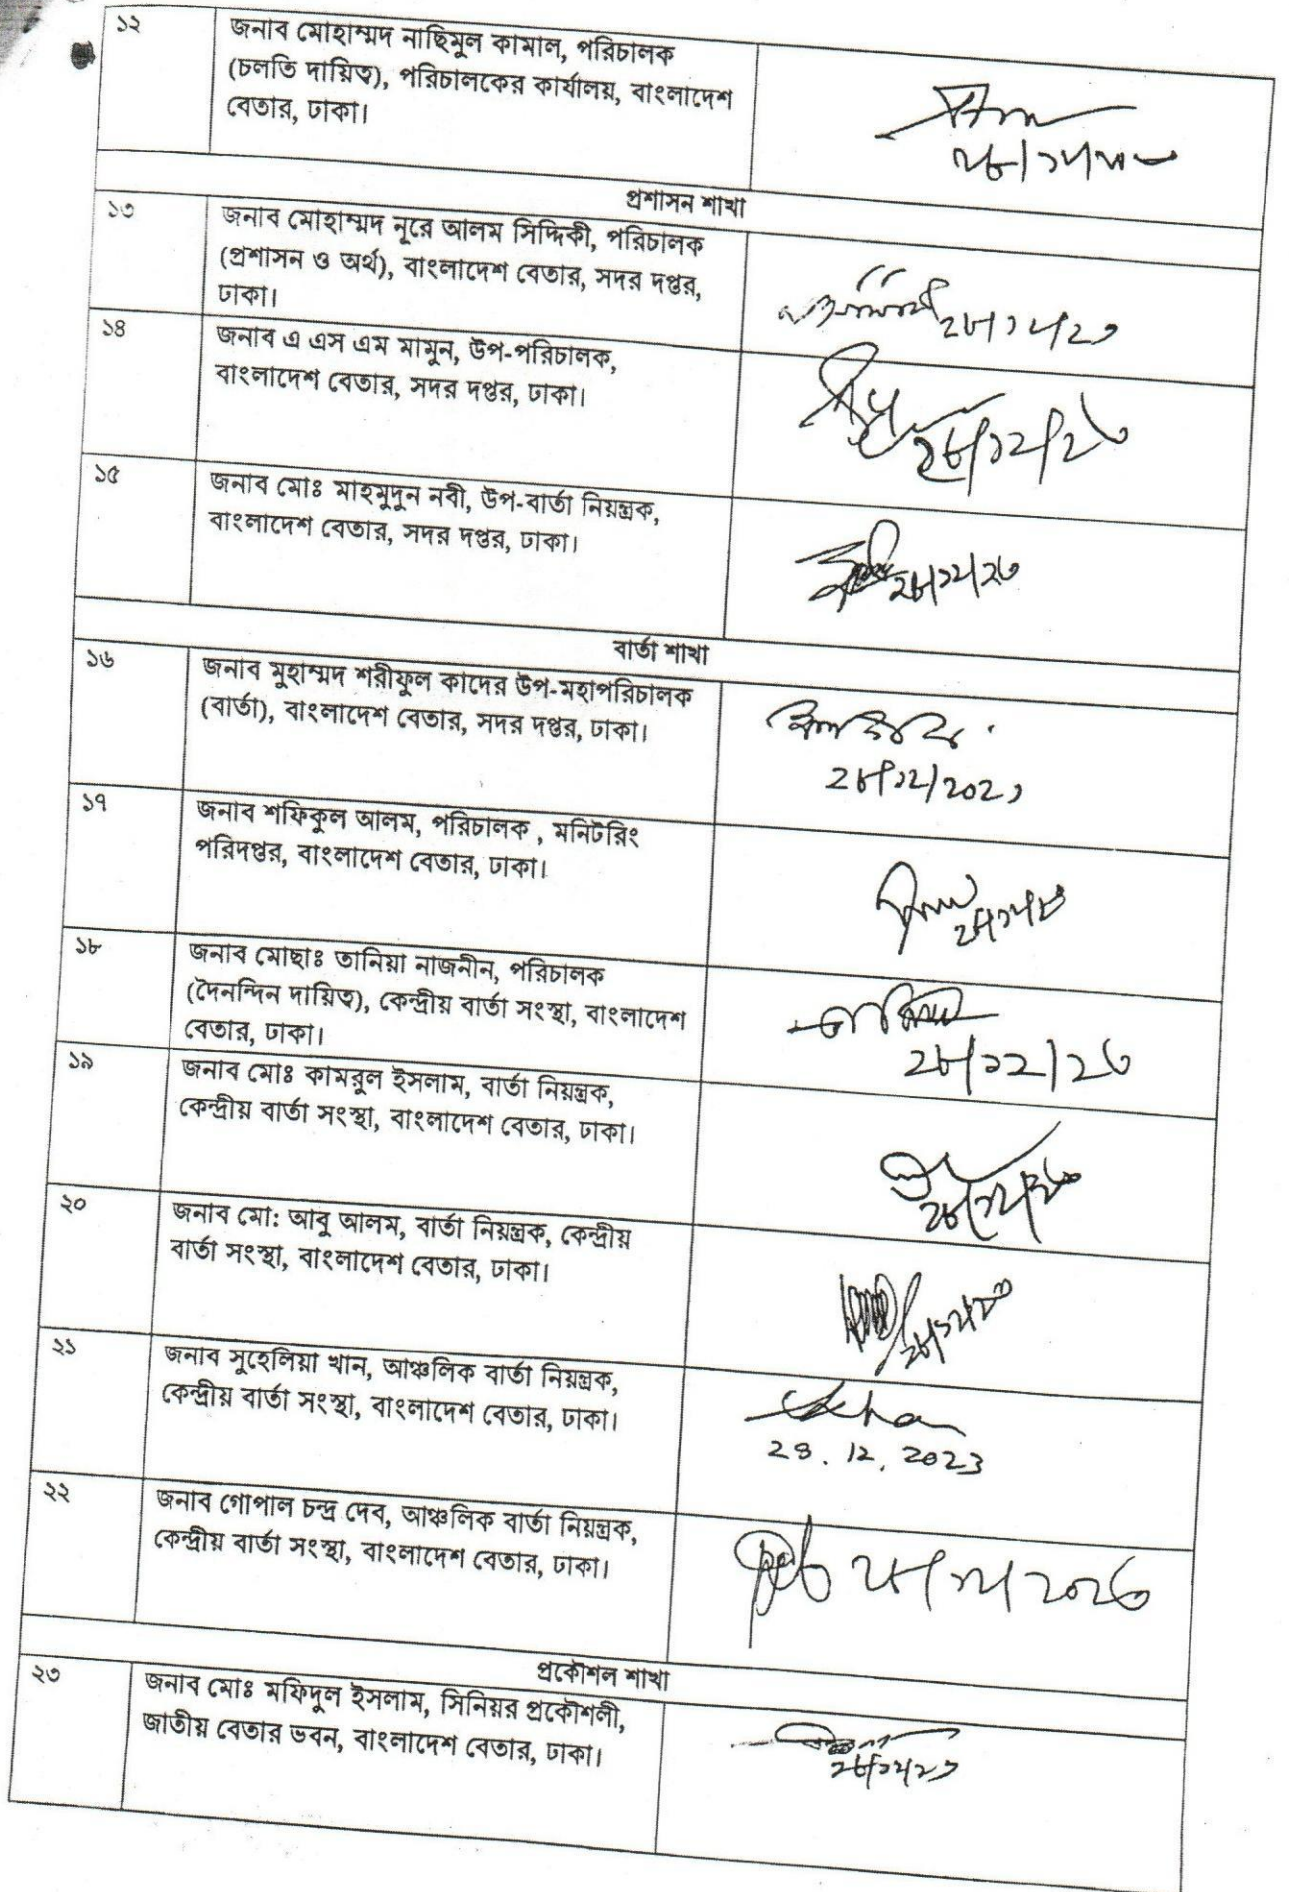 ১২
জনাব মোহাম্মদ নাছিমুল কামাল, পরিচালক
(চলতি দায়িত্ব), পরিচালকের কার্যালয়, বাংলাদেশ
বেতার, ঢাকা।
প্রশাসন শাখা
১৩
জনাব মোহাম্মদ নূরে আলম সিদ্দিকী, পরিচালক
(প্রশাসন ও অর্থ), বাংলাদেশ বেতার, সদর দপ্তর,
ঢাকা।
১৪
জনাব এ এস এম মামুন, উপ-পরিচালক,
বাংলাদেশ বেতার, সদর দপ্তর, ঢাকা।
২৮/১২/২৩
১৫
জনাব মোঃ মাহমুদুন নবী, উপ-বার্তা নিয়ন্ত্রক,
বাংলাদেশ বেতার, সদর দপ্তর, ঢাকা।
২৮/১২/২৩
বার্তা শাখা
১৬
জনাব মুহাম্মদ শরীফুল কাদের উপ-মহাপরিচালক
(বার্তা), বাংলাদেশ বেতার, সদর দপ্তর, ঢাকা।
২৮/১২/২০২৩
১৭
জনাব শফিকুল আলম, পরিচালক , মনিটরিং
পরিদপ্তর, বাংলাদেশ বেতার, ঢাকা।
১৮
জনাব মোছাঃ তানিয়া নাজনীন, পরিচালক
(দৈনন্দিন দায়িত্ব), কেন্দ্রীয় বার্তা সংস্থা, বাংলাদেশ
বেতার, ঢাকা।
২৮/১২/২৩
১৯
জনাব মোঃ কামরুল ইসলাম, বার্তা নিয়ন্ত্রক,
কেন্দ্রীয় বার্তা সংস্থা, বাংলাদেশ বেতার, ঢাকা।
২০
জনাব মো: আবু আলম, বার্তা নিয়ন্ত্রক, কেন্দ্রীয়
বার্তা সংস্থা, বাংলাদেশ বেতার, ঢাকা।
২১
জনাব সুহেলিয়া খান, আঞ্চলিক বার্তা নিয়ন্ত্রক,
কেন্দ্রীয় বার্তা সংস্থা, বাংলাদেশ বেতার, ঢাকা।
28.12.2023
২২
জনাব গোপাল চন্দ্র দেব, আঞ্চলিক বার্তা নিয়ন্ত্রক,
কেন্দ্রীয় বার্তা সংস্থা, বাংলাদেশ বেতার, ঢাকা।
২৮/১২/২০২৩
প্রকৌশল শাখা
২৩
জনাব মোঃ মফিদুল ইসলাম, সিনিয়র প্রকৌশলী,
জাতীয় বেতার ভবন, বাংলাদেশ বেতার, ঢাকা।